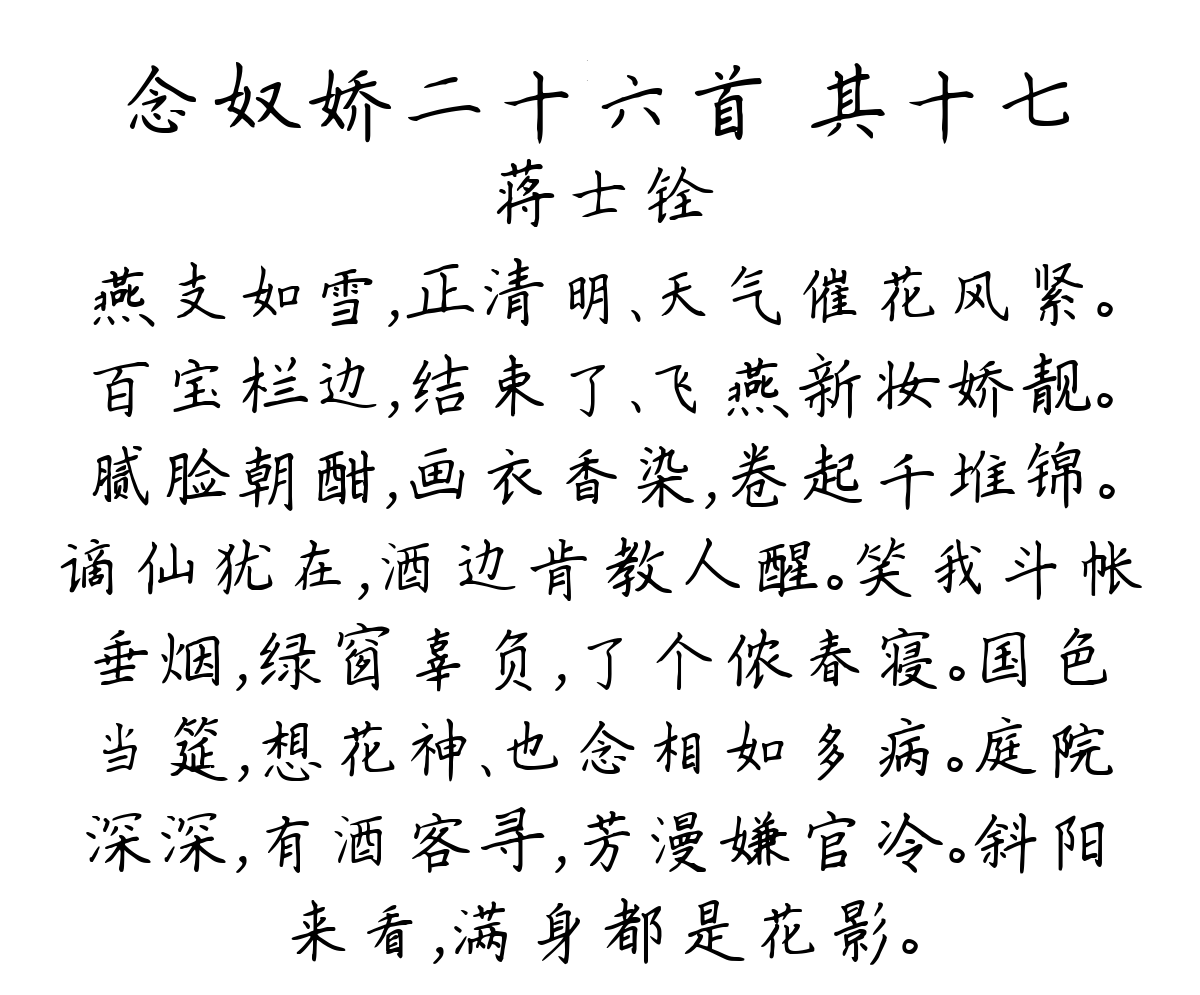 念奴娇二十六首 其十七
蒋士铨
燕支如雪,正清明、天气催花风紧。
百宝栏边,结束了、飞燕新妆娇靓。
腻脸朝酣,画衣香染,卷起千堆锦。
谪仙犹在,酒边肯教人醒。笑我斗帐
垂烟,绿窗辜负,了个侬春寝。国色
当筵,想花神、也念相如多病。庭院
深深,有酒客寻,芳漫嫌官冷。斜阳
来看,满身都是花影。